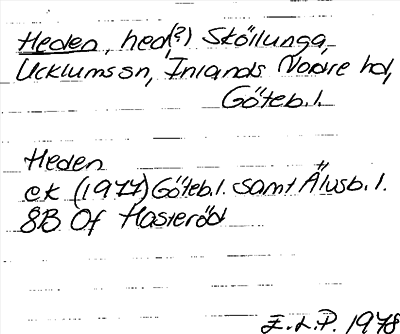 Heden, hed(?) Sköllunga,
Ucklums sn, Inlands Nordre hd,
Göteb. l.
Heden
ek (1977) Göteb. l. samt Älvsb. l.
8B Of Hasteröd
E.L.P. 1978